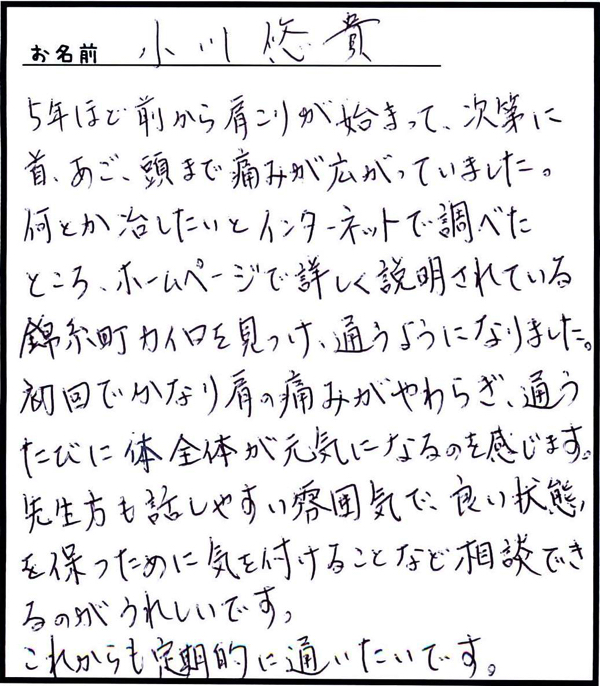 お名前 小川悠貴
5年ほど前から肩こりが始まって、次第に
首、あご、頭まで痛みが広がっていました。
何とか治したいとインターネットで調べた
ところ、ホームページで詳しく説明されている
錦糸町カイロを見つけ、通うようになりました。
初回でかなり肩の痛みがやわらぎ、通う
たびに体全体が元気になるのを感じます。
先生方も話しやすい雰囲気で、良い状態
を保つために気を付けることなど相談でき
るのがうれしいです。
これからも定期的に通いたいです。